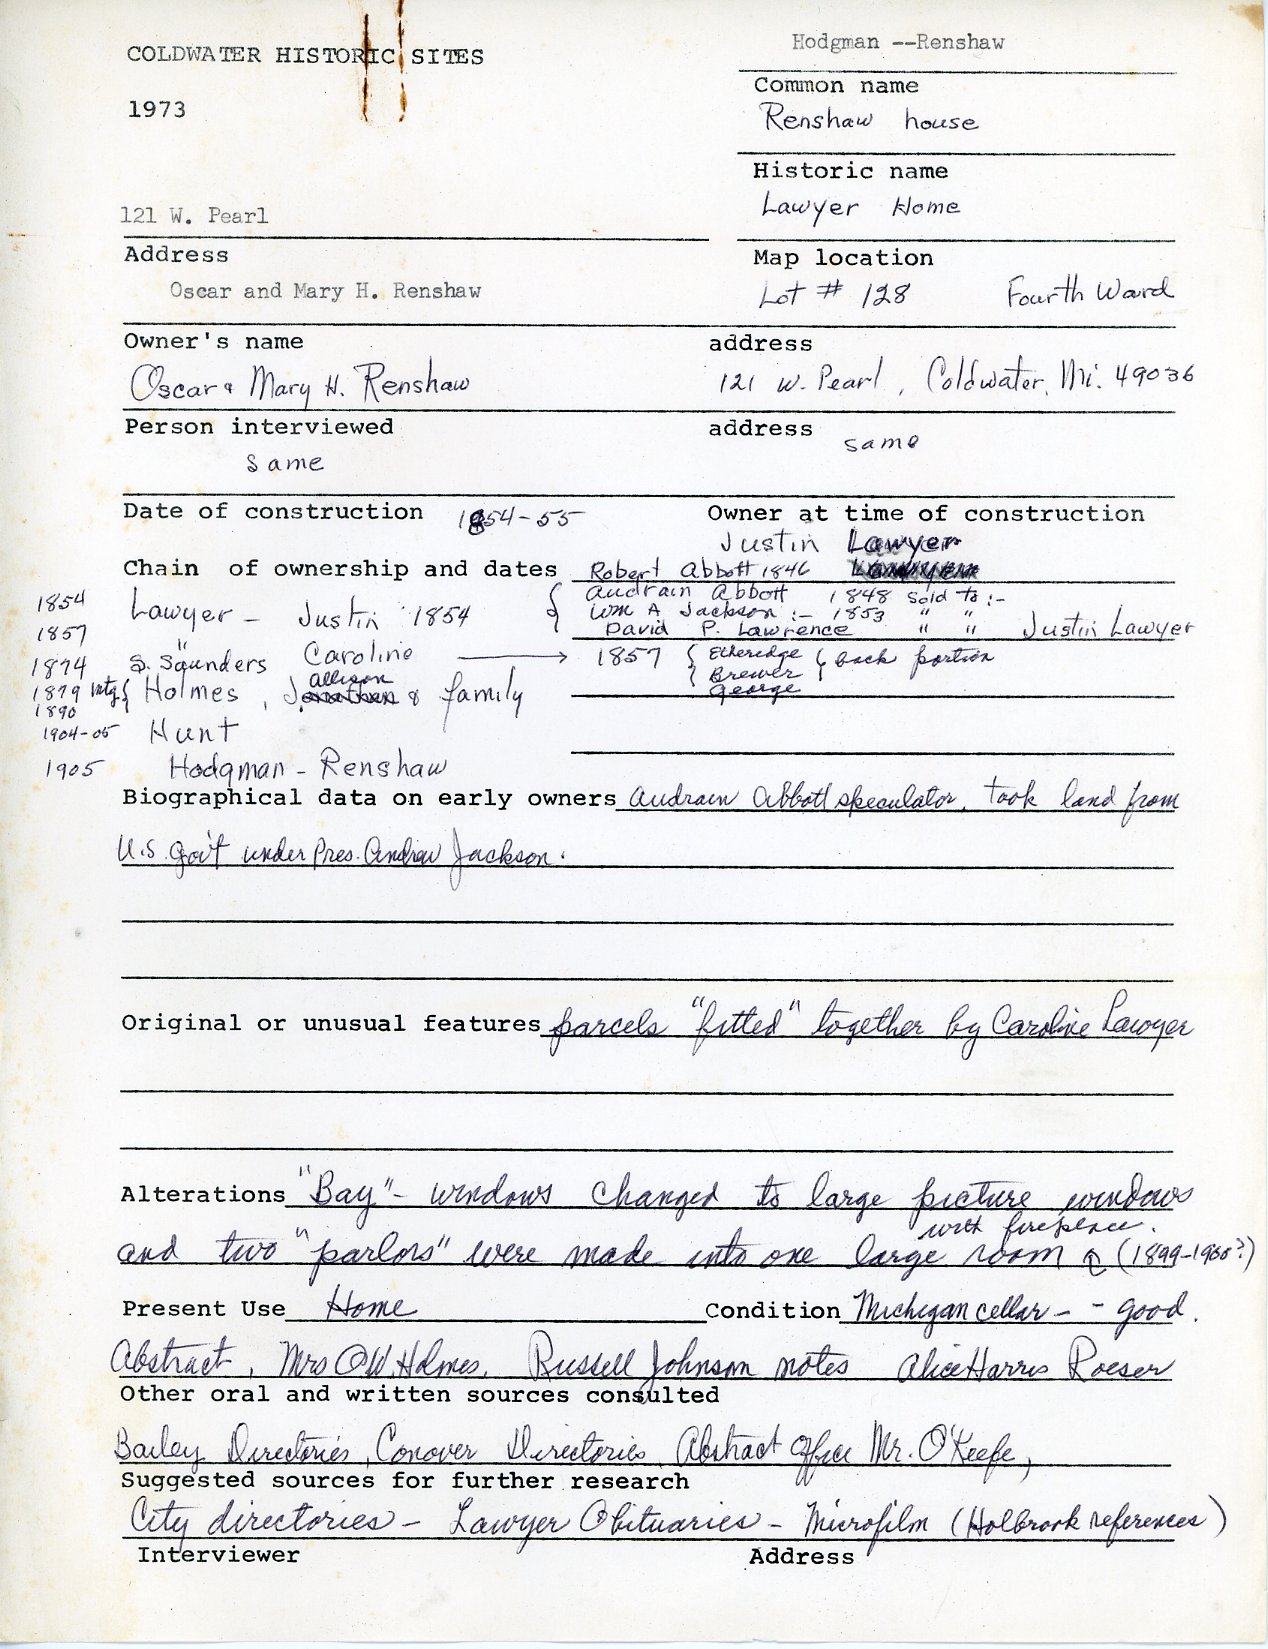 Hodgman --Renshaw
COLDWATER HISTORIC SITES
Common name
1973
Renshaw house
Historic name
Lawyer Home
121 W. Pearl
Address
Map location
Oscar and Mary H. Renshaw
Lot # 128 Fourth Ward
Owner's name address
Oscar & Mary H. Renshaw 121 W. Pearl, Coldwater, Mi. 49036
Person interviewed address same
same
Date of construction 1854-55 Owner at time of construction
Justin Lawyer
Chain of ownership and dates Robert Abbott 1846
Audrain Abbott 1848 sold to :-
1854 Lawyer - Justin 1854 Wm A Jackson :- 1853 " "
1857 " David P. Lawrence " " Justin Lawyer
Caroline → 1857 { Etheredge
1874 S. Saunders Brewer } back portion
George
1879 mtg { Holmes, Jonathan Allison & family
1890
1904-05 Hunt
1905 Hodgman - Renshaw
Biographical data on early owners Audrain Abbott speculator, took land from
U.S. Gov't under Pres. Andrew Jackson.
Original or unusual features parcels "fitted" together by Caroline Lawyer
Alterations "Bay" - windows changed to large picture windows
with fireplace.
and two "parlors" were made into one large room (1899-1900?)
Present Use Home Condition Michigan cellar - - good.
Abstract, Mrs O.W. Holmes, Russell Johnson notes Alice Harris Roeser
Other oral and written sources consulted
Bailey Directories, Conover Directories, Abstract Office Mr. O'Keefe,
Suggested sources for further research
City directories - Lawyer Obituaries - Microfilm (Holbrook references)
Interviewer Address